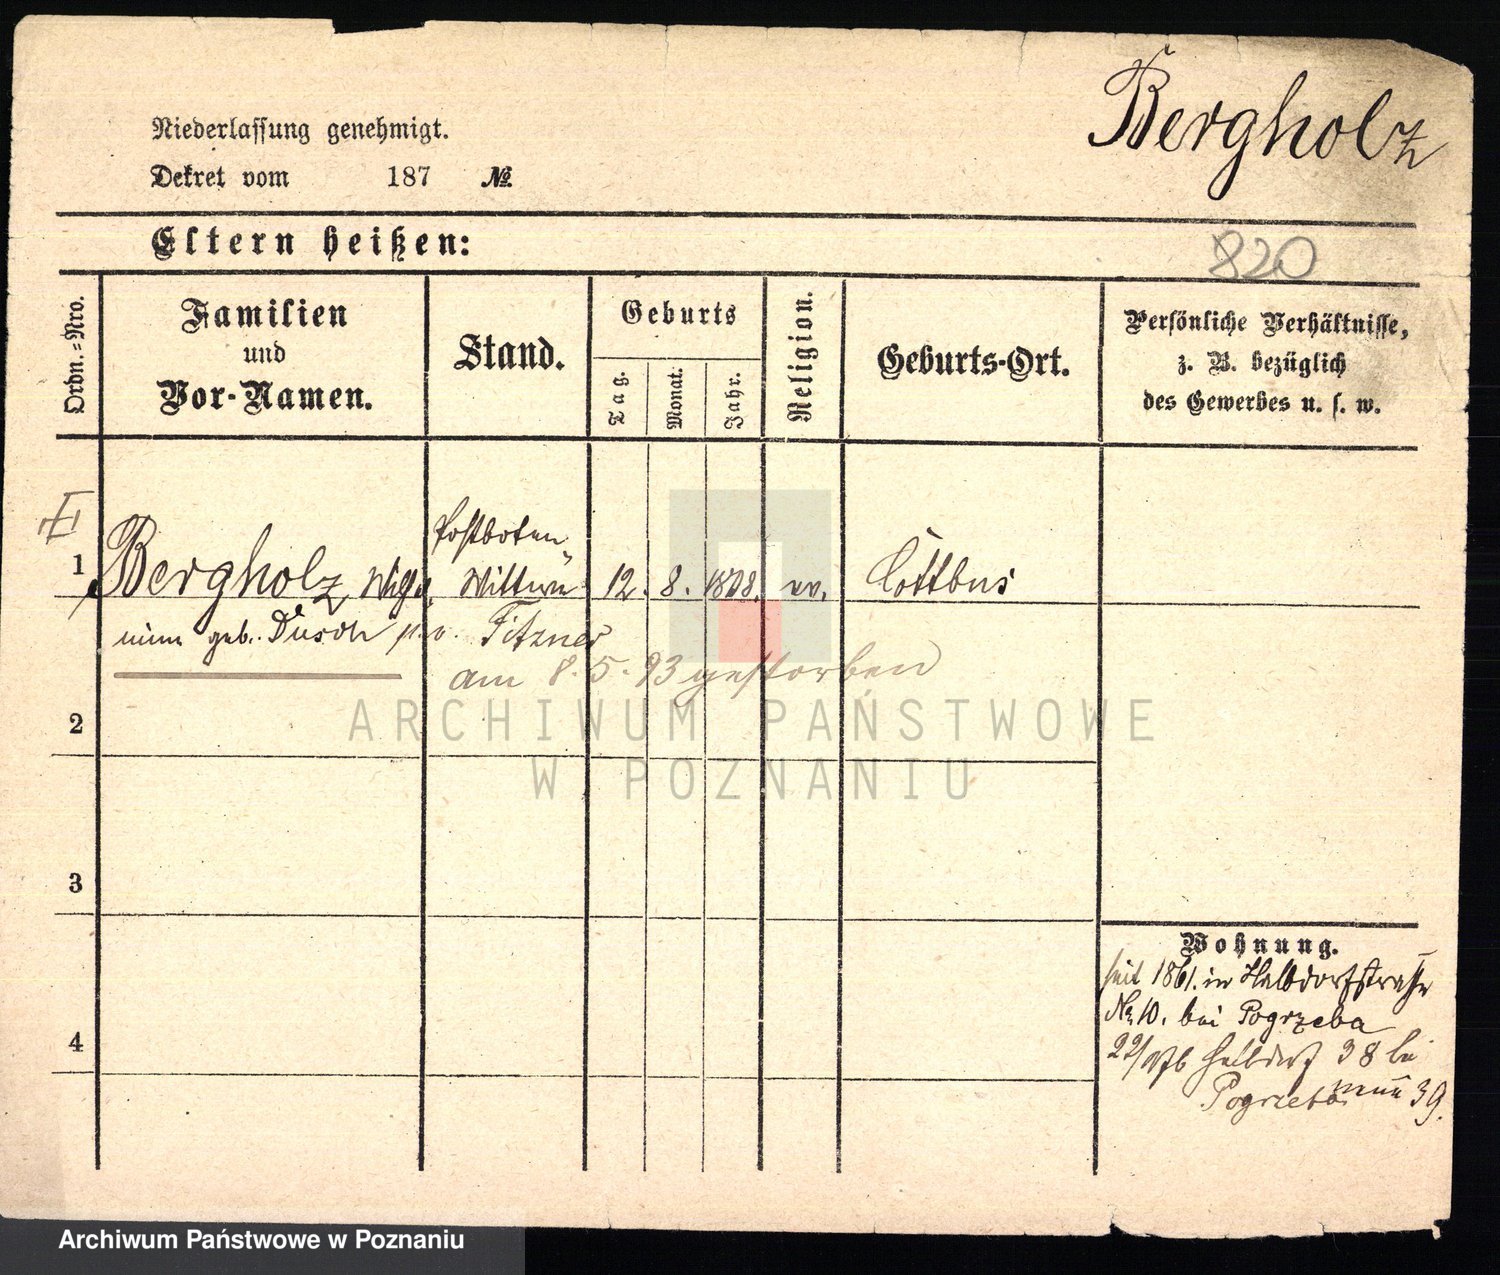 Bergholz
Niederlassung genehmigt.
Dekret vom 187 №
Eltern heißen:
820
Ordn.-Nro.
Familien
und
Vor-Namen.
Stand.
Geburts
Tag.
Monat.
Jahr.
Religion.
Geburts-Ort.
Persönliche Verhältnisse,
z. B. bezüglich
des Gewerbes u. s. w.
1
Bergholz, Wilhel
mine geb. Dusch
Postboten
Wittwe
Fitzner
12. 8. 18 8. ev. Cottbus
am 8.5.93 gestorben
2
3
4
Wohnung.
seit 1861. in Halbdorfstraße
No 10. bei Pogrzeba
Halbdorf 38 bei
Pogrzeba neue 39.
ARCHIWUM PAŃSTWOWE
W POZNANIU
Archiwum Państwowe w Poznaniu